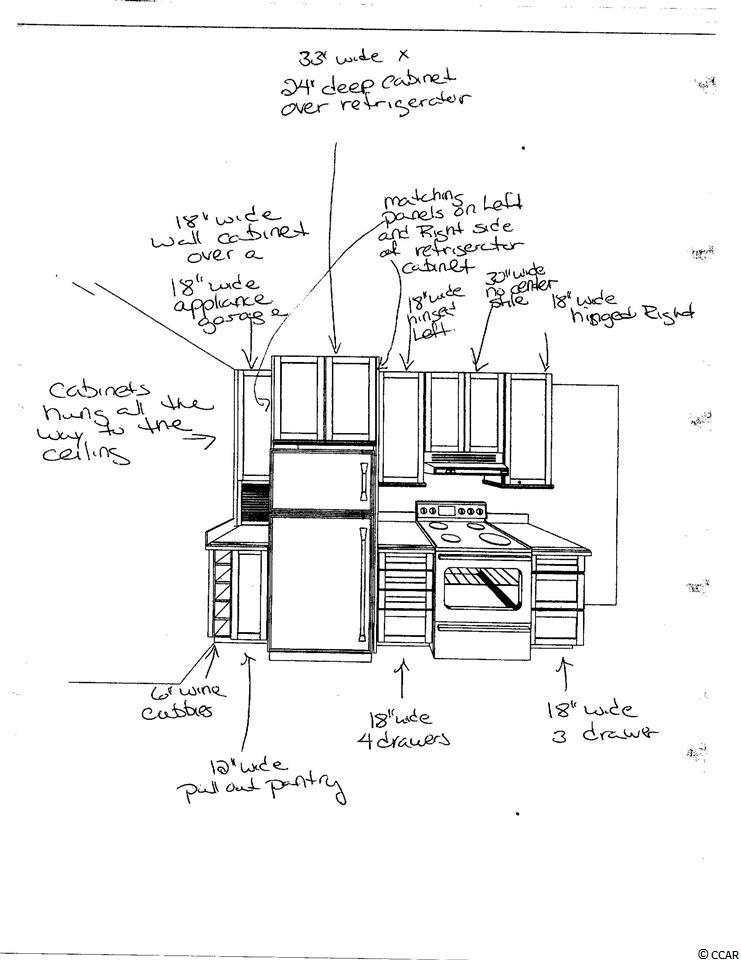 33" wide x
24" deep cabinet
over refrigerator
18" wide
wall cabinet
over a
18" wide
appliance
garage
matching
panels on Left
and Right side
of refrigerator
cabinet
18" wide
hinged
Left
30" wide
no center
stile
18" wide
hinged Right
Cabinets
hung all the
way to the
ceiling
6" wine
cubbies
12" wide
pull out pantry
18" wide
4 drawers
18" wide
3 drawer
© CCAR